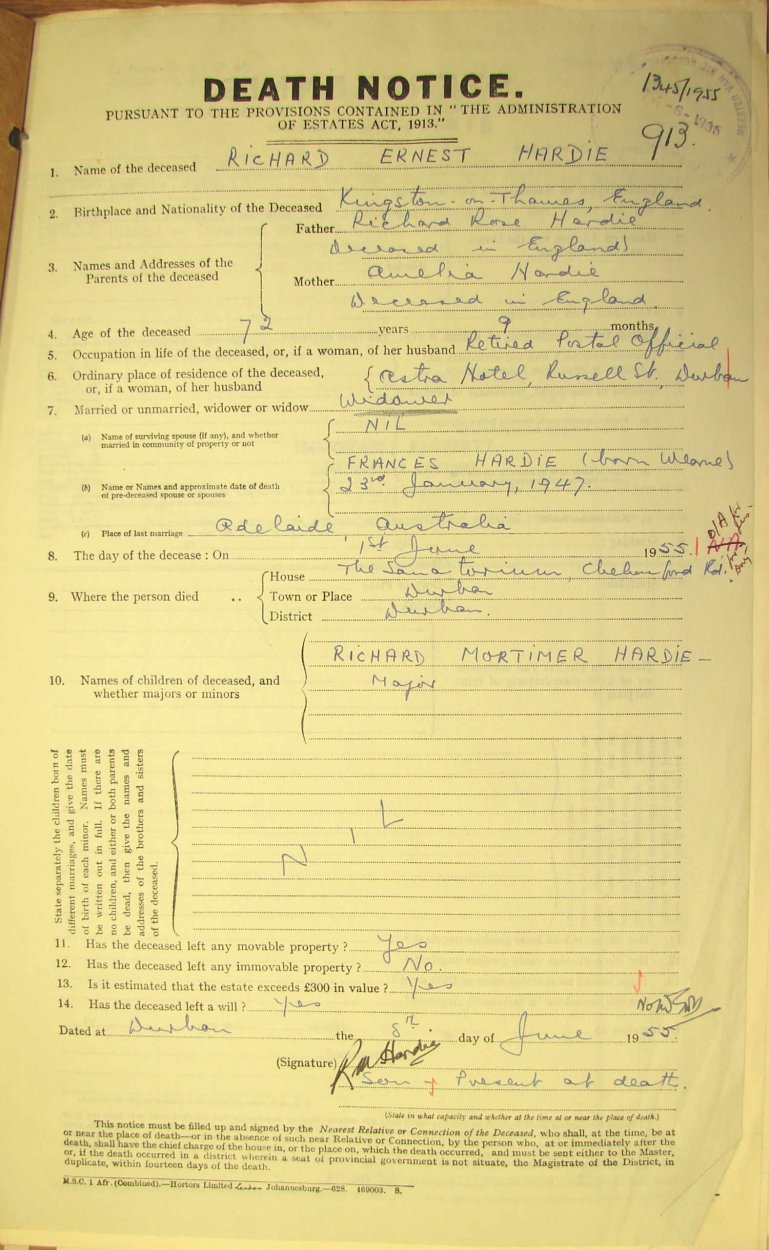 1345/1955
DEATH NOTICE.
PURSUANT TO THE PROVISIONS CONTAINED IN "THE ADMINISTRATION
OF ESTATES ACT, 1913."
913.
1. Name of the deceased RICHARD ERNEST HARDIE
2. Birthplace and Nationality of the Deceased Kingston-on-Thames, England.
3. Names and Addresses of the Parents of the deceased
Father Richard Rose Hardie
Deceased in England
Mother Amelia Hardie
Deceased in England.
4. Age of the deceased 72 years 9 months
5. Occupation in life of the deceased, or, if a woman, of her husband Retired Postal Official
6. Ordinary place of residence of the deceased,
or, if a woman, of her husband
Astra Hotel, Russell St, Durban
7. Married or unmarried, widower or widow Widower
(a) Name of surviving spouse (if any), and whether
married in community of property or not
NIL
(b) Name or Names and approximate date of death
of pre-deceased spouse or spouses
FRANCES HARDIE (born Wearne)
23rd January, 1947.
(c) Place of last marriage Adelaide Australia
8. The day of the decease : On 1st June 1955.
9. Where the person died ..
House The Sanatorium, Chelmsford Rd.
Town or Place Durban
District Durban.
10. Names of children of deceased, and
whether majors or minors
RICHARD MORTIMER HARDIE –
Major
State separately the children born of
different marriages, and give the date
of birth of each minor. Names must
be written out in full. If there are
no children, and either or both parents
be dead, then give the names and
addresses of the brothers and sisters
of the deceased.
N I L
11. Has the deceased left any movable property ? Yes
12. Has the deceased left any immovable property ? No.
13. Is it estimated that the estate exceeds £300 in value ? Yes
14. Has the deceased left a will ? Yes
Dated at Durban the 8th day of June 1955.
(Signature) RM Hardie
Son Present at death.
(State in what capacity and whether at the time at or near the place of death.)
This notice must be filled up and signed by the Nearest Relative or Connection of the Deceased, who shall, at the time, be at
or near the place of death—or in the absence of such near Relative or Connection, by the person who, at or immediately after the
death, shall have the chief charge of the house in, or the place on, which the death occurred, and must be sent either to the Master,
or, if the death occurred in a district wherein a seat of provincial government is not situate, the Magistrate of the District, in
duplicate, within fourteen days of the death.
M.S.C. 1 Afr. (Combined).—Hortors Limited Johannesburg.—628. 469003. 8.